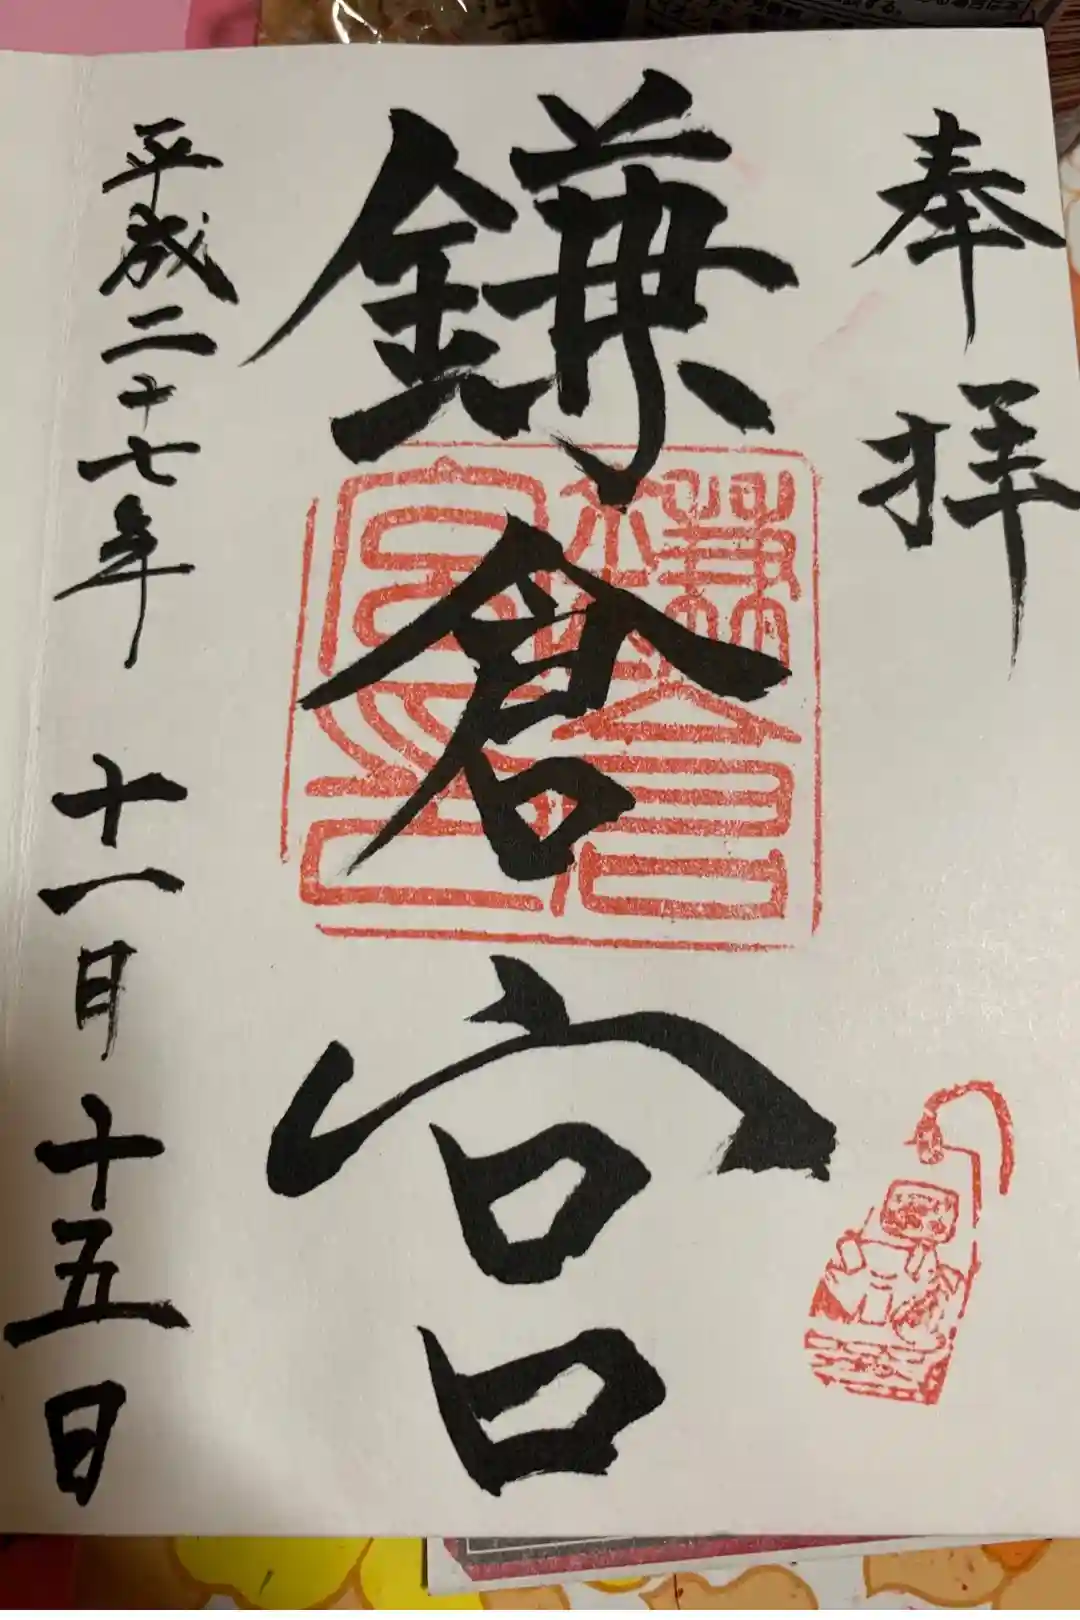 奉拝
鎌倉宮
鎌倉宮印
平成二十七年 十一月十五日